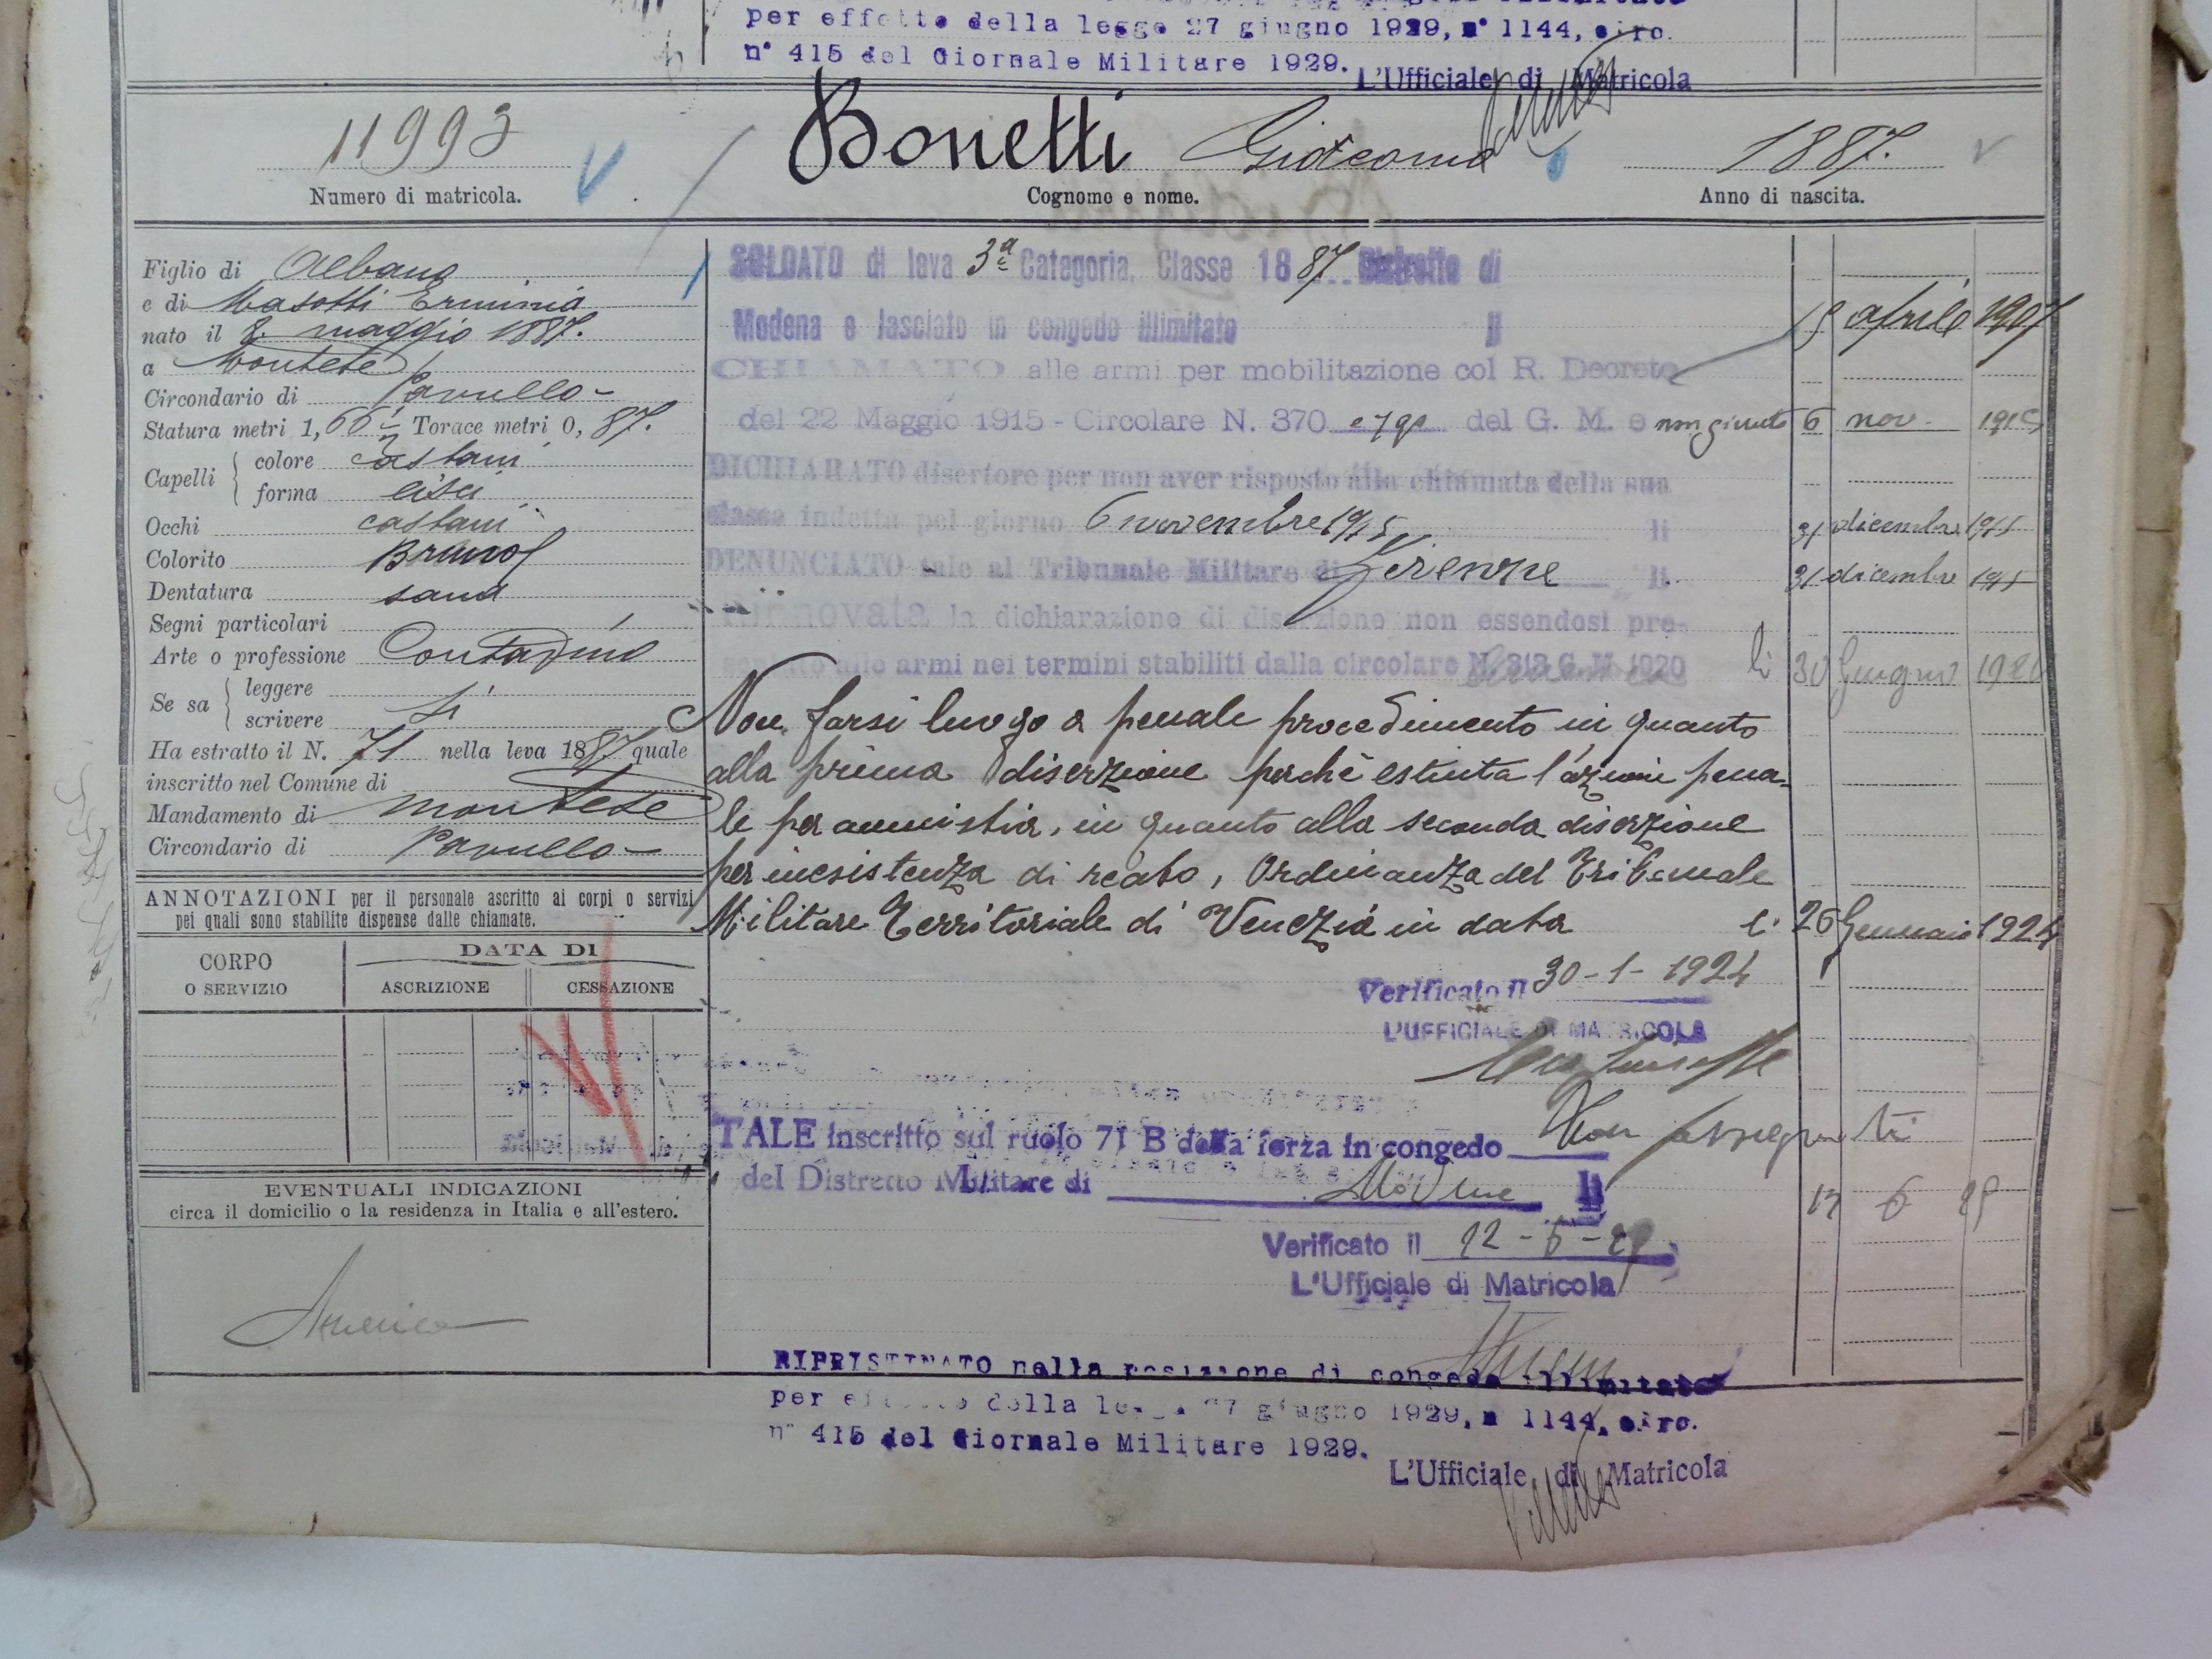 per effetto della legge 27 giugno 1929, n° 1144, circ.
n° 415 del Giornale Militare 1929.
L'Ufficiale di Matricola
11993
Bonetti Giacomo
1887.
Numero di matricola.
Cognome e nome.
Anno di nascita.
Figlio di Albano
e di Masotti Erminia
nato il 2 maggio 1887.
a Montese
Circondario di Pavullo
Statura metri 1,66 ½ Torace metri 0, 87.
Capelli colore castani
forma lisci
Occhi castani
Colorito Bruno
Dentatura sana
Segni particolari /
Arte o professione Contadino
Se sa leggere
scrivere si
Ha estratto il N. 71 nella leva 1887 quale
inscritto nel Comune di
Mandamento di Montese
Circondario di Pavullo
ANNOTAZIONI per il personale ascritto ai corpi o servizi
pei quali sono stabilite dispense dalle chiamate.
CORPO
O SERVIZIO
DATA DI
ASCRIZIONE
CESSAZIONE
EVENTUALI INDICAZIONI
circa il domicilio o la residenza in Italia e all'estero.
America
SOLDATO di leva 3ª Categoria, Classe 1887 Distretto di
Modena e lasciato in congedo illimitato li aprile 1907
CHIAMATO alle armi per mobilitazione col R. Decreto
del 22 Maggio 1915 - Circolare N. 370 e 790 del G. M. e non giunto 6 nov. 1915
DICHIARATO disertore per non aver risposto alla chiamata della sua
classe indetta pel giorno 6 novembre 1915 li 31 dicembre 1915
DENUNCIATO tale al Tribunale Militare di Firenze li 31 dicembre 1915
Rinnovata la dichiarazione di diserzione non essendosi pre-
sentato alle armi nei termini stabiliti dalla circolare N. 313 G. M. 1920 li 30 Giugno 1920
Non farsi luogo a penale procedimento in quanto
alla prima diserzione perchè estinta l'azione pena-
le per amnistia, in quanto alla seconda diserzione
per inesistenza di reato, Ordinanza del Tribunale
Militare Territoriale di Venezia in data li 26 Gennaio 1924
Verificato il 30-1-1924
L'UFFICIALE DI MATRICOLA
TALE inscritto sul ruolo 71 B della forza in congedo Non assegnati
del Distretto Militare di Modena li 12 6 29
Verificato il 12-6-29
L'Ufficiale di Matricola
RIPRISTINATO nella posizione di congedo illimitato
per effetto della legge 27 giugno 1929, n 1144, circ.
n° 415 del Giornale Militare 1929.
L'Ufficiale di Matricola